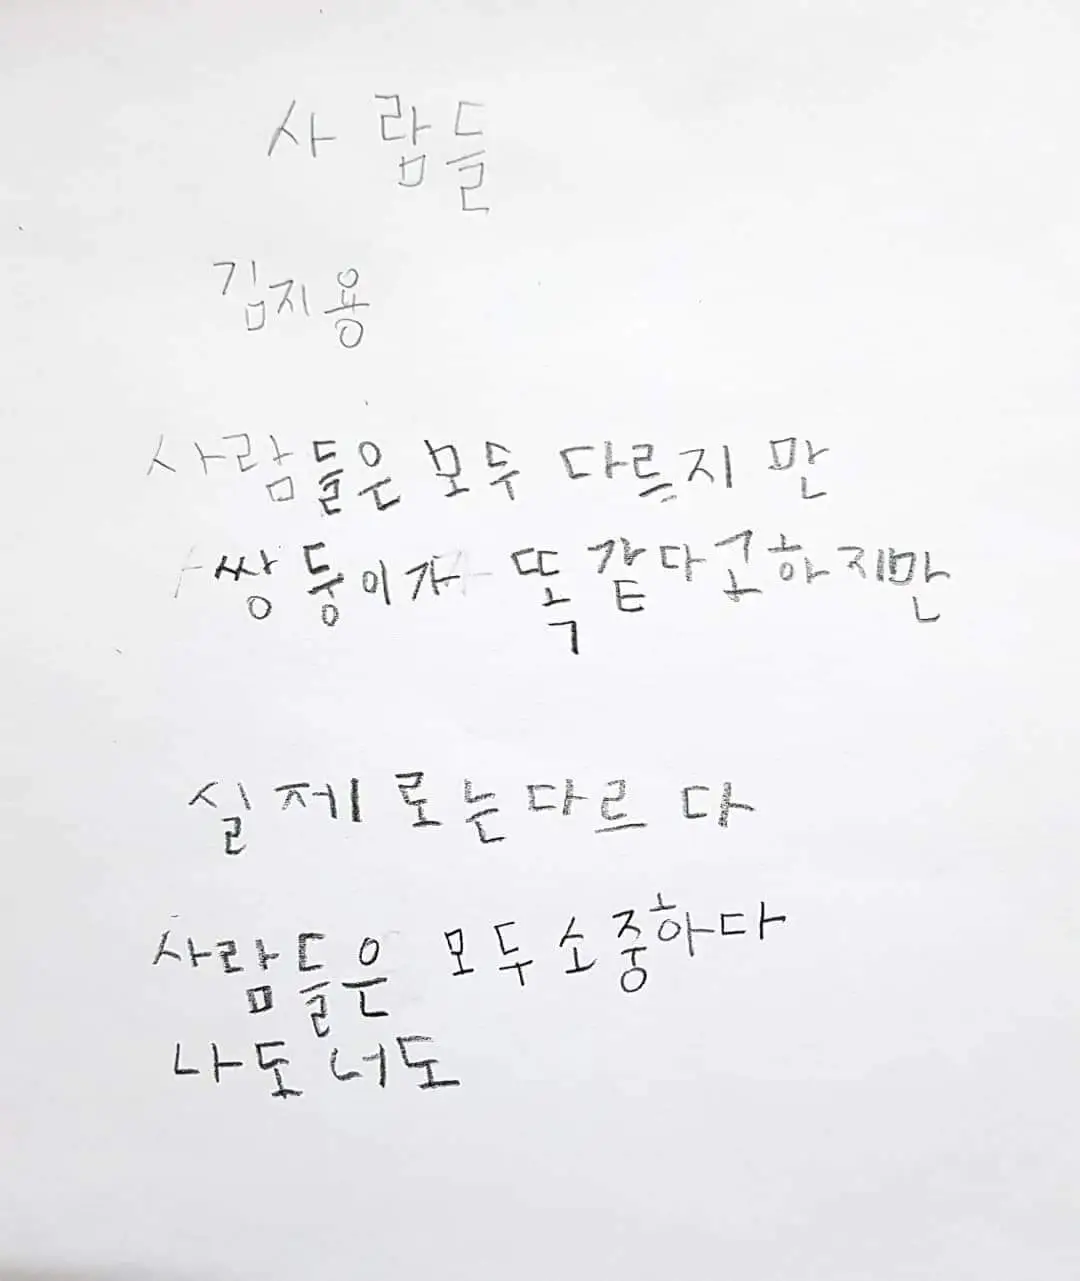 사람들
김지용
사람들은 모두 다르지만
쌍둥이가 똑같다고하지만
실제로는다르다
사람들은 모두소중하다
나도 너도